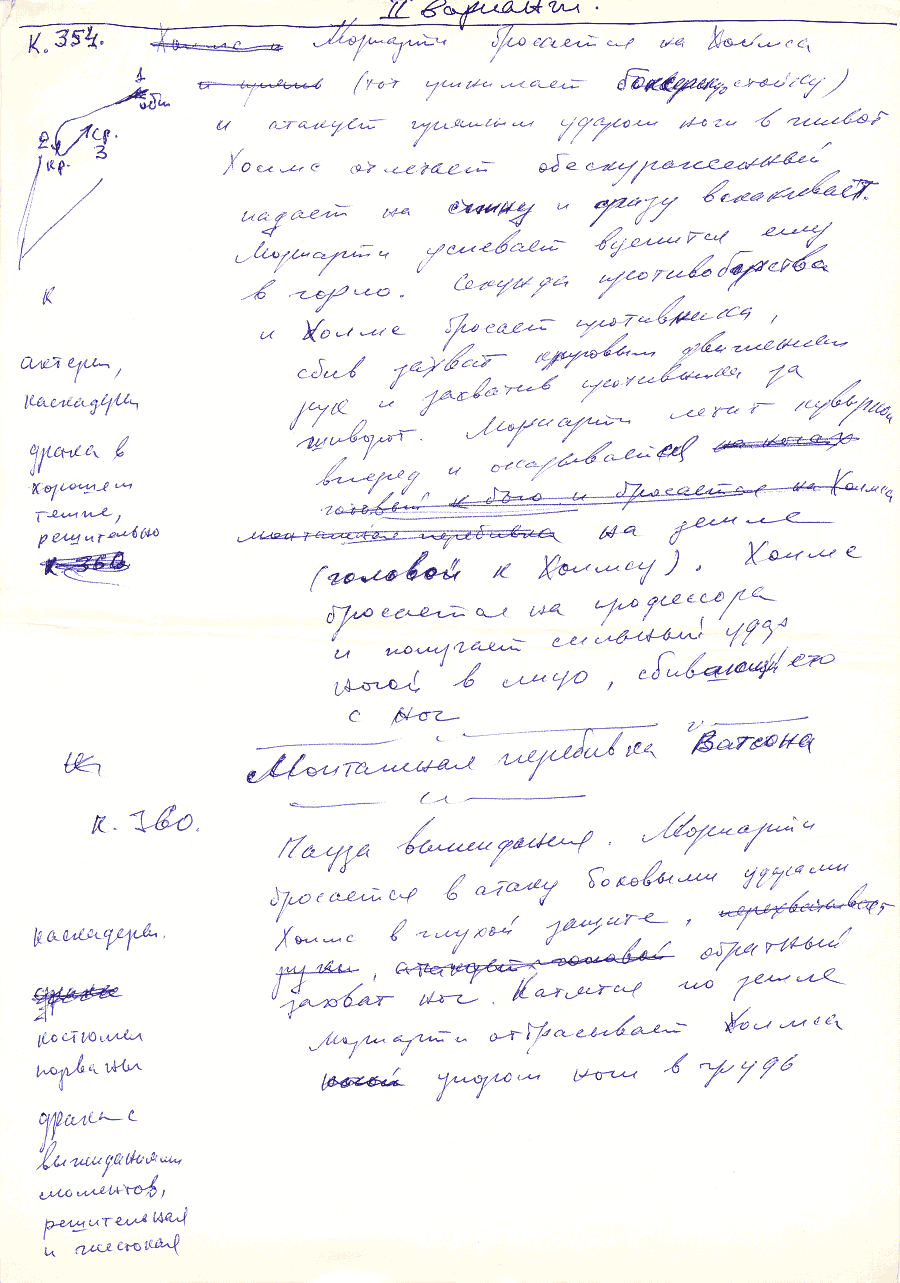 II вариант.
К. 354. Холмс и Мориарти бросается на Холмса
(тот принимает боксерскую стойку)
и атакует прямым ударом ноги в живот
Холмс отлетает обескураженный
падает на спину и сразу вскакивает.
Мориарти успевает вцепится ему
в горло. Секунда противоборства
и Холмс бросает противника,
сбив захват круговым движением
рук и захватив противника за
шиворот. Мориарти летит кувырком
вперед и оказывается на ногах
готовый к бою и бросается на Холмса
монтажная перебивка на земле
(головой к Холмсу). Холмс
бросается на профессора
и получает сильный удар
ногой в лицо, сбивающий его
с ног
1
общ
2
кр.
кр.
3
К
актеры,
каскадеры
драка в
хорошем
темпе,
решительно
К 360
Монтажная перебивка Ватсона
К. 360.
Пауза выжидания. Мориарти
бросается в атаку боковыми ударами
Холмс в глухой защите, перехватывает
руки, атакует головой обратный
захват ног. Катятся по земле
Мориарти отбрасывает Холмса
ногой упором ноги в грудь
каскадеры.
драка
костюмы
порваны
драка с
выжиданиями
моментов,
решительная
и жестокая